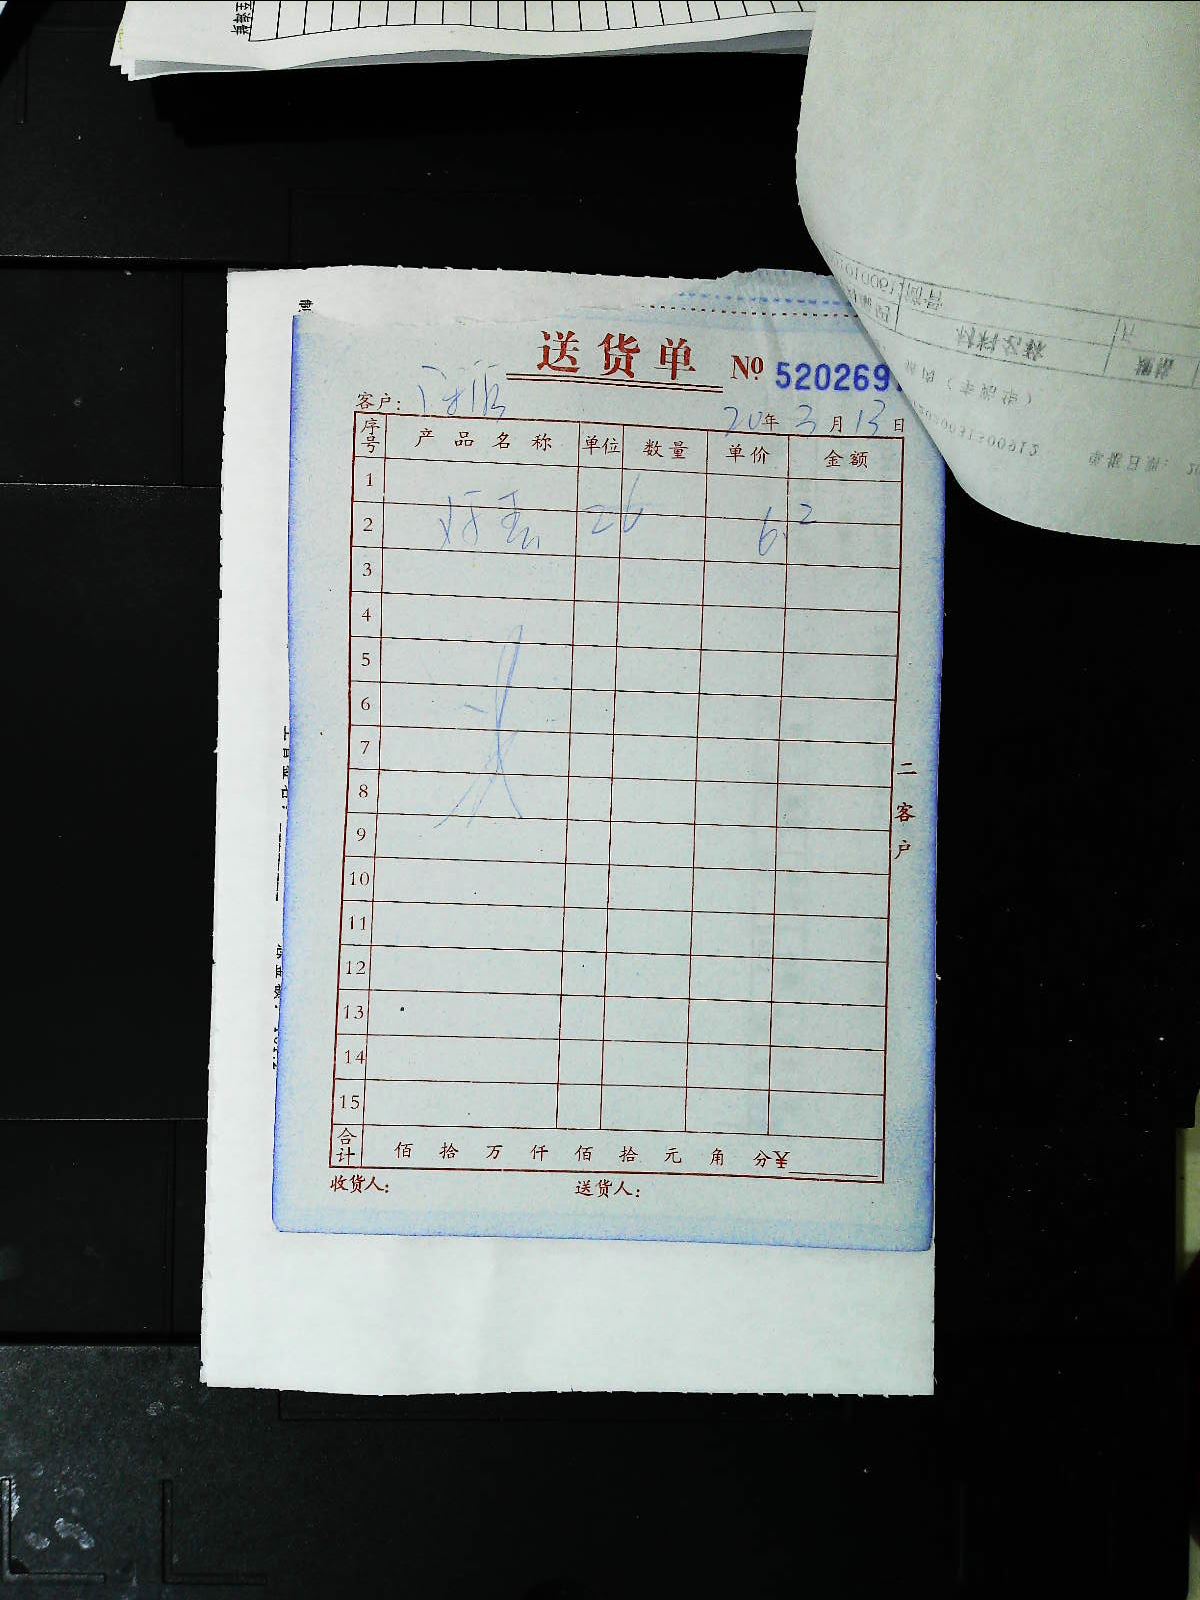 送货单 Nº 520269
客户:
20年 3月 13日
序号 产品名称 单位 数量 单价 金额
1
2 26 6.2
3
4
5
6
7
8
9
10
11
12
13
14
15
合计 佰 拾 万 仟 佰 拾 元 角 分¥
收货人: 送货人:
二客户